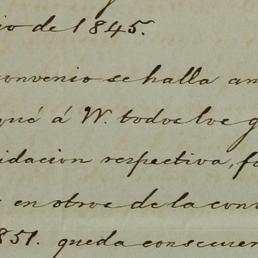 io de 1845.
convenio se halla an
qué á W. todos los g
idacion respectiva, fa
en otros de la con
851. queda consecuen